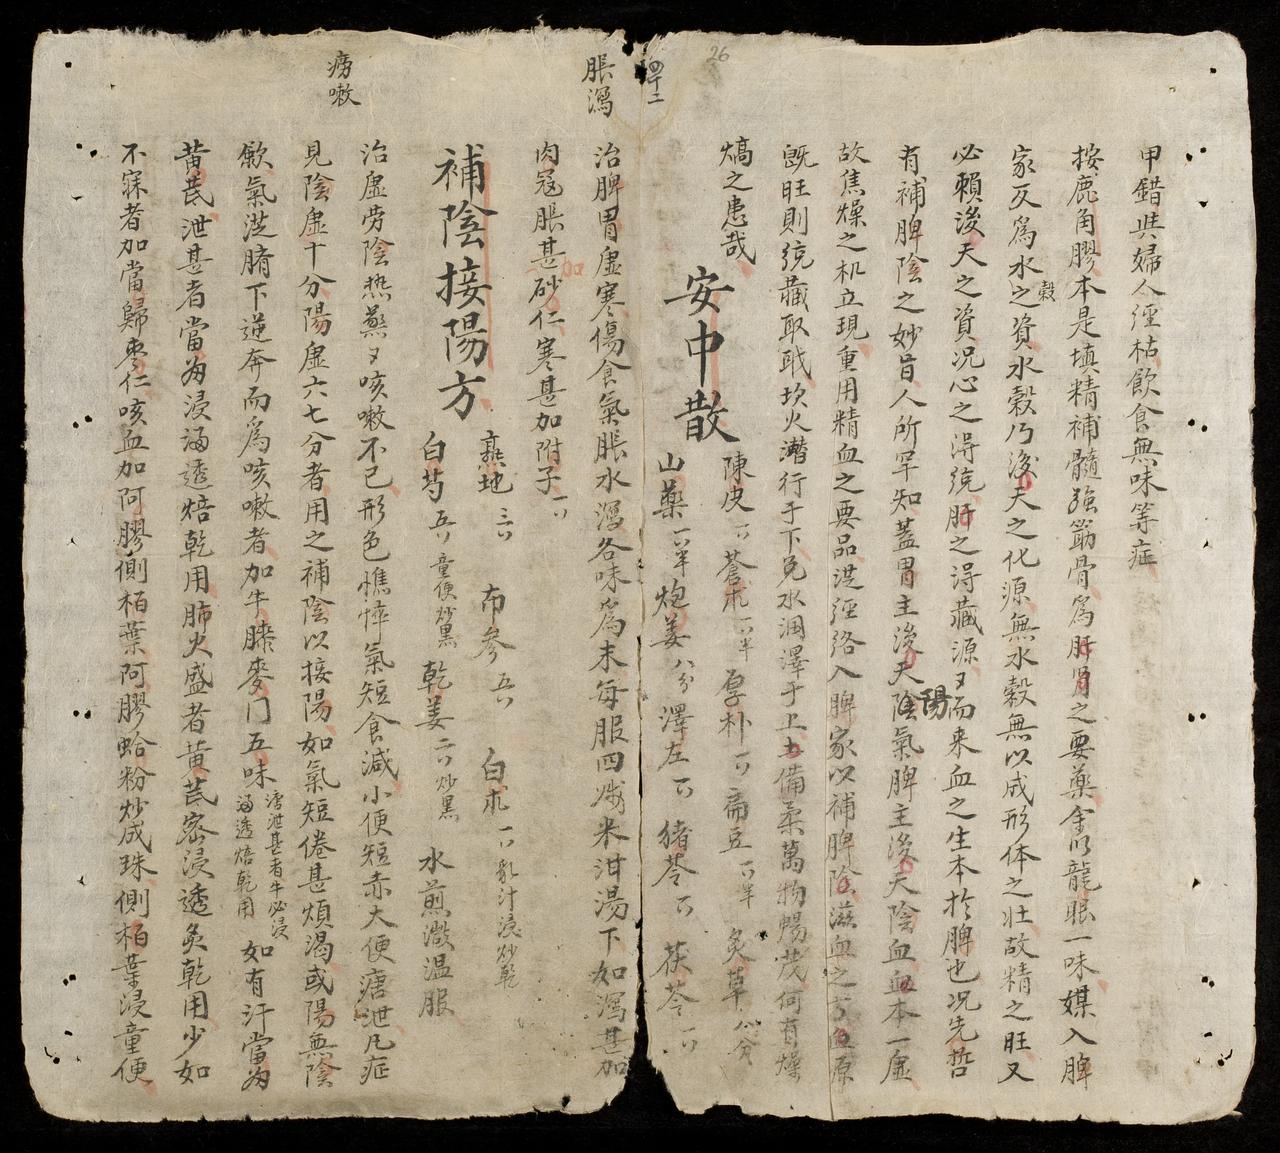 26
四十二
甲錯與婦人經枯飲食無味等症
按鹿角膠本是填精補髓強筋骨爲肝腎之要藥全以龍眼一味媒入脾
家反爲水穀之資水穀乃後天之化源無水穀無以成形体之壮故精之旺又
必賴後天之資况心之得統肝之得藏源又而来血之生本於脾也况先哲
有補脾陰之妙旨人所罕知蓋胃主後天陽氣脾主後天陰血血本一虛
故焦燥之机立現重用精血之要品從經絡入脾家以補脾陰滋血之原
既旺則統藏取戢坎火濳行于下免水润澤于上土備柔萬物暢茂何有燥
熇之患哉
安中散
陳皮一仆 蒼朮一仆半 厚朴一仆 扁豆一仆半 炙草八分
山藥一仆半 炮姜八分 澤左一仆 猪苓一仆 茯苓一仆
脹瀉
治脾胃虛寒傷食氣脹水瀉各味爲末每服四戋米泔湯下如瀉甚加
肉冠脹甚加砂仁寒甚加附子一仆
補陰接陽方
熟地三仆 布參五仆 白朮一仆乳汁浸炒乾
白芍五仆童便炒黑 乾姜二仆炒黑 水煎濃温服
癆嗽
治虛劳陰热蒸又咳嗽不已形色憔悴氣短食減小便短赤大便瘡泄凡症
見陰虛十分陽虛六七分者用之補陰以接陽如氣短倦甚煩渴或陽無陰
歛氣從臍下逆奔而爲咳嗽者加牛膝麥门五味溏泄甚者牛必浸酒透焙乾用如有汗當為
黄芪泄甚者當為浸酒透焙乾用肺火盛者黄芪密浸透炙乾用少如
不寐者加當歸枣仁咳血加阿膠側栢葉阿膠蛤粉炒成珠側栢葉浸童便